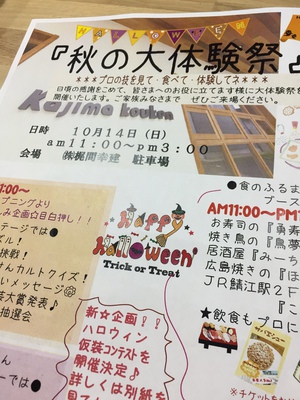 HALLOWE
『秋の大体験祭』
***プロの技を見て・食べて・体験してネ***
日頃の感謝をこめて、皆さまへのお役に立てます様に大体験祭を
開催いたします。ご家族みなさまで ぜひご来場ください。
Kajima kouken
日時 10月14日(日)
am11:00~pm3:00
会場 ㈱梶間幸建 駐車場
:00~
プニングより
み企画◎目白押し!!
テージでは●
ズル!
挑戦!
さんカルトクイズ!
いメッセージ
芸大賞発表♪
抽選会
Happy
Halloween
Trick or Treat
新☆企画!!
ハロウィン
仮装コンテストを
開催決定♪
詳しくは別紙を
●食のふるま
ブース
AM11:00~PM1
お寿司の『勇寿
焼き鳥の『鳥夢
居酒屋『みーち
広島焼きの『ほ
JR鯖江駅2F
『こ
★飲食もプロに
サバエシュー
※チケットをお
さん
ーでは●